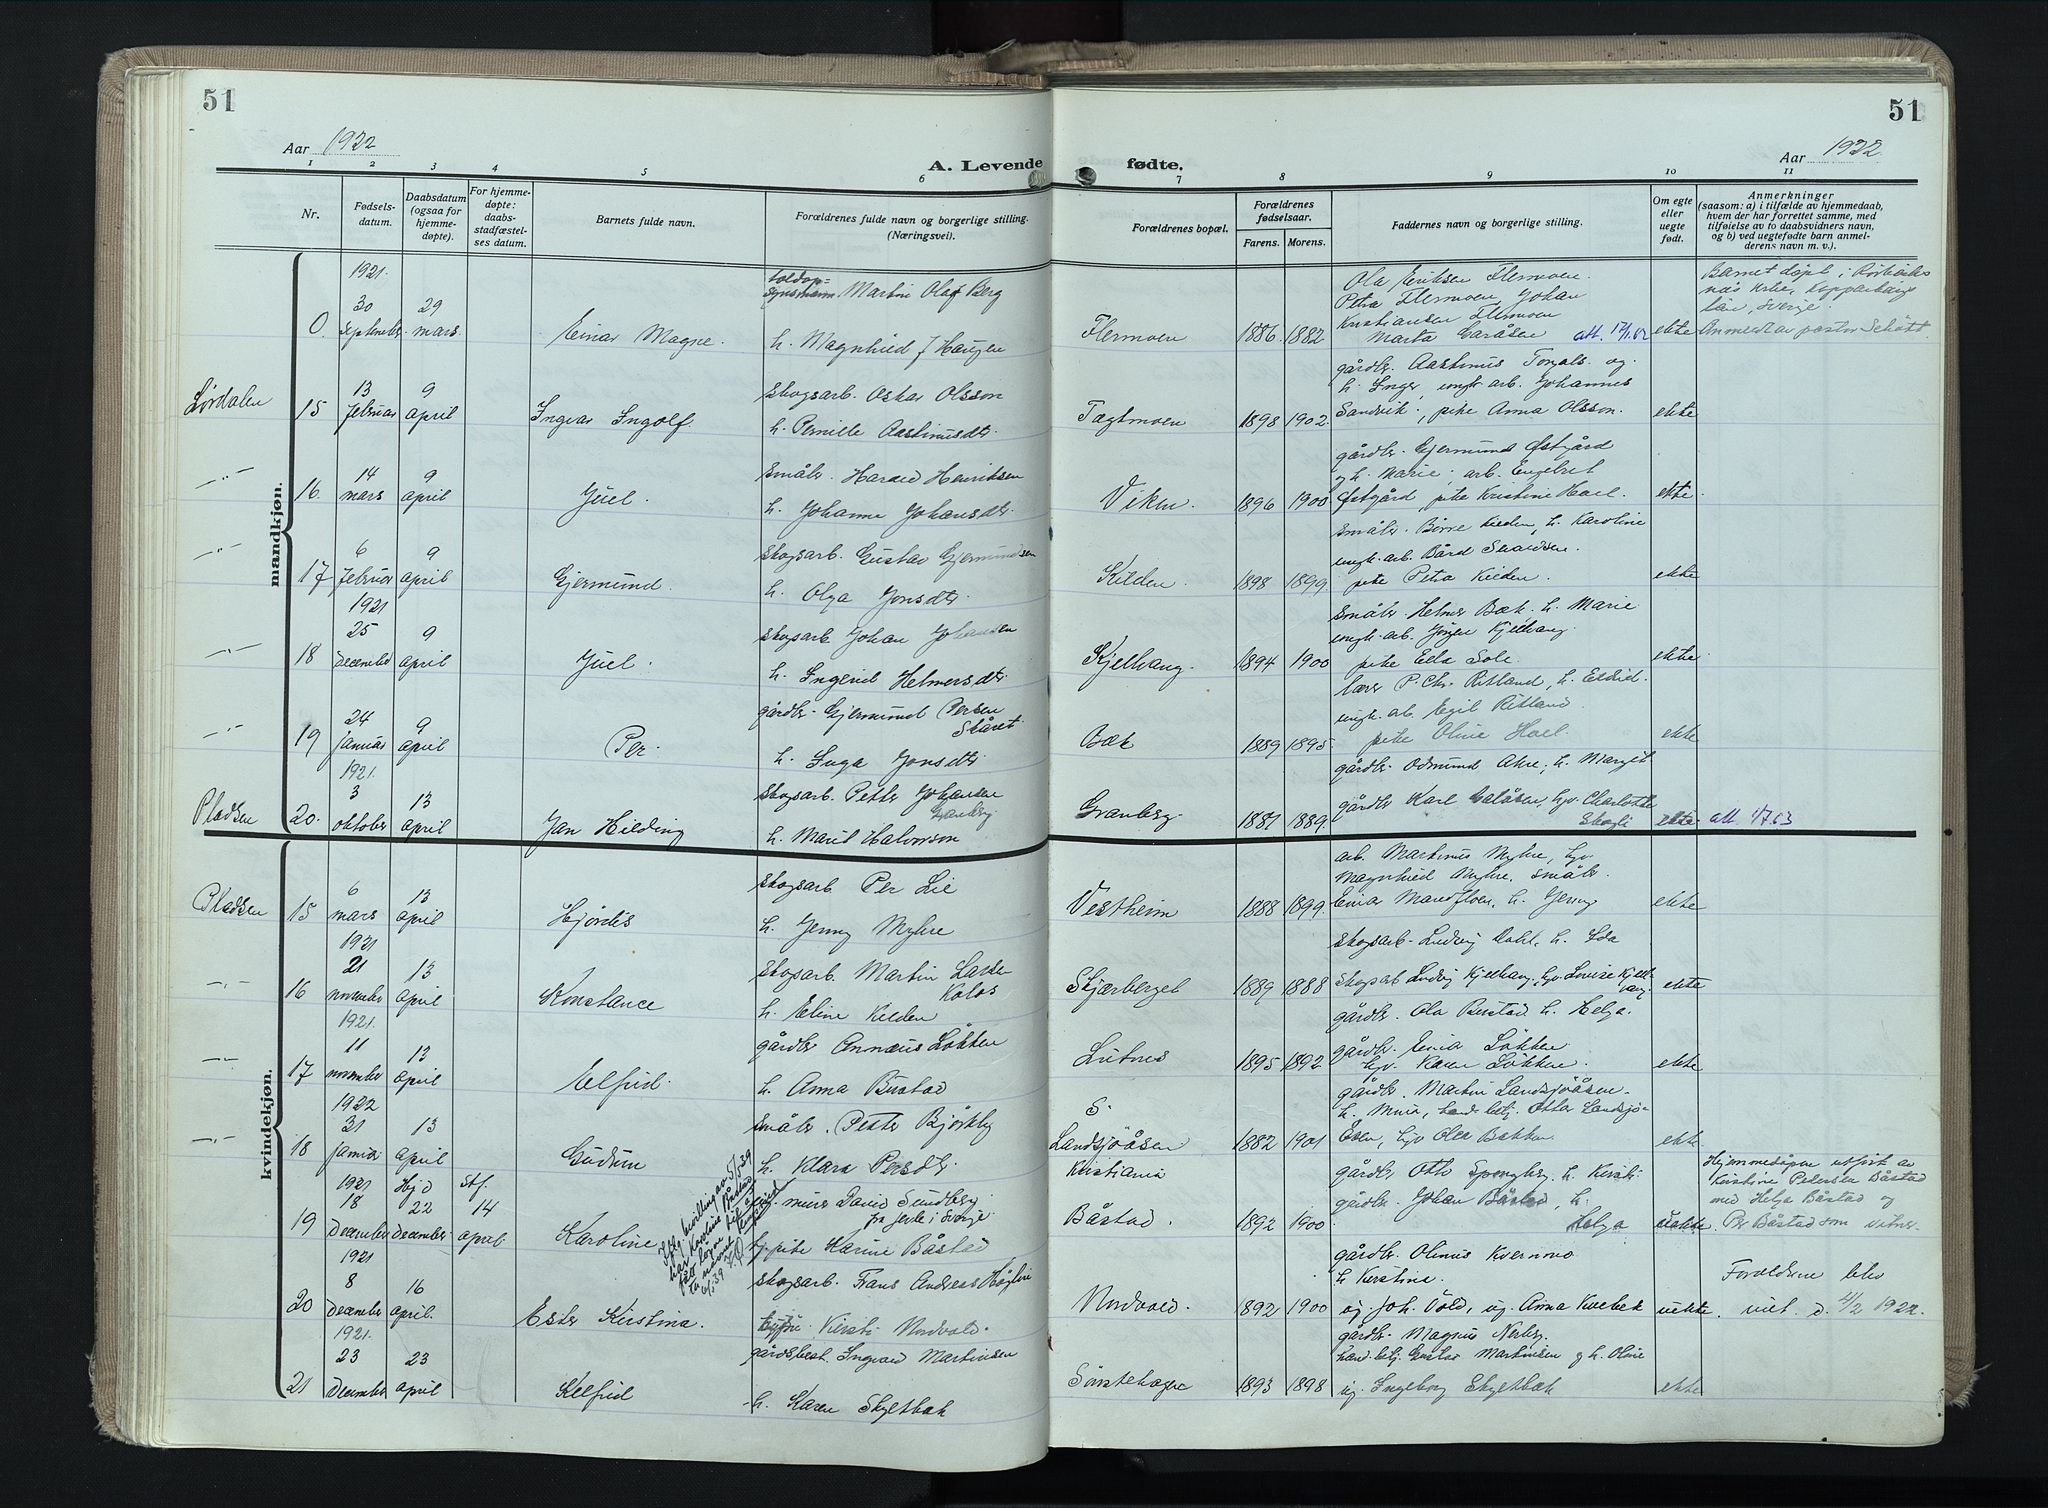 51
51
Aar 1922
Aar 1922
A. Levende
fødte.
1 2 3 4 5 6
7 8 9 10 11
Nr.
Fødsels-
datum.
Daabsdatum
(ogsaa for
hjemme-
døpte).
For hjemme-
døpte:
daabs-
stadfæstel-
ses datum.
Barnets fulde navn.
Forældrenes fulde navn og borgerlige stilling.
(Næringsvei).
Forældrenes bopæl.
Forældrenes
fødselsaar.
Farens. Morens.
Faddernes navn og borgerlige stilling.
Om egte
eller
uegte
født.
Anmerkninger
(saasom: a) i tilfælde av hjemmedaab,
hvem der har forrettet samme, med
tilføielse av to daabsvidners navn,
og b) ved uegtefødte barn anmel-
derens navn m. v.).
mandkjøn.
0 1921. 30 september 29 mars Einar Magne. Martin Olaf Berg
h. Magnhild Haugen
Flermoen 1886 1882
Ola Eriksen Flermoen.
Petra Flermoen, Johan
Kristiansen Flermoen
Marta Garåsen ekte
Barnet døpt i
län, Sverige.
Lørdalen
15 13 februar 9 april Ingvar Ingolf. skogsarb. Oskar Olsson
h. Pernille Aastmusdtr.
Tagtmoen 1898 1902.
gårdbr. Aastmus og
h. Inger, ungk. arb. Johannes
Sandvik, pike Anna Olsson. ekte
-"- 16. 14 mars 9 april Juel. småbr. Harald Henriksen
h. Johanne Johansdtr.
Viken. 1896 1900
gårdbr. Gjermund Østgård
og h. Marie, arb. Engebret
Østgård, pike Kristine Hoel. ekte
-"- 17 6 februar 9 april Gjermund. skogsarb. Gustav Gjermundsen
h. Olga Jonsdtr.
Kilden. 1898 1899.
småbr. Børre Kilden, h. Karoline
ungk. arb. Bård
pike Petra Kilden. ekte
-"- 18 1921 25 december 9 april Juel. skogsarb. Johan Johansen
h. Ingerid Helmersdtr.
Kjelhaug. 1894 1900
småbr. Helmer Bæk, h. Marie
ungk. arb. Jørgen Kjelhaug.
pike Ella Sole. ekte
-"- 19 24 januar 9 april Per. gårdbr. Gjermund Persen
Skåret
h. Inga Jonsdtr.
Bæk 1889 1895.
lærer P. Chr. Ritland, h. Eldrid.
ungk. arb. Egil Ritland.
pike Oline Hoel. ekte
Pladsen
20. 1921. 3 oktober 13 april Jan Hilding skogsarb. Petter Johansen
Granberg
h. Marit Halvorsen
Granberg. 1887 1889.
gårdbr. Odmund Akre, h. Marget
gårdbr. Karl Galåsen, hv. Charlotte
Skogli ekte
kvindekjøn.
Pladsen
15 6 mars 13 april Hjørdis skogsarb Per Lie
h. Jenny Myhre
Vestheim 1888 1899.
arb. Martinus Myhre, hv.
Magnhild Myhre, småbr.
Einar Mandfloen, h. Jenny ekte
-"- 16 1921 21 november 13 april Konstance skogsarb. Martin Larsen
Kolos
h. Eline Kilden
Skjærberget 1889 1888
skogsarb. Ludvig Dahl, h. Ida
skogsarb Ludvig Kjelhaug, hv. Lovise Kjel-
haug. ekte
-"- 17 1921. 11 november 13 april Elfrid. gårdbr Annæus Løkken
h. Anna Bustad
Lutnes 1895 1892
gårdbr. Ola Bustad h. Helga.
gårdbr. Einar Løkken
hv. Karen Løkken. ekte
-"- 18 1922 31 januar 13 april Gudrun småbr. Petter Bjørkby
h. Klara Persdtr.
S.
Landsjøåsen 1882 1901
gårdbr. Martin Landsjøåsen.
h. Mina, handelsbetj. Otter Landsjø-
åsen, hv. Olea Bakken ekte
19 1921 18 december Hjd 22 december Stf. 14 april Karoline murer David Sundberg
fra Jerle i Sverige.
pike Karine Båstad
Kristiania
Båstad. 1892 1900
gårdbr. Otto Spangberg, h. Kirsti.
gårdbr. Johan Båstad, h.
Helga uekte.
Hjemmedåpen utført av
Kirstine Petersen Båstad
med Helga Båstad og
Per Båstad som vitner.
20 1921 8 december 16 april. Ester Kirstina. skogsarb. Frans Andreas
Kirsti Nordvold.
Nordvold. 1892 1900
gårdbr. Olinus Kvernmo
h Kirstine.
ug. Joh. Vold, ug. Anna Kvebek uekte.
Foreldrene blev
viet d. 4/2 1922.
21 1921. 23 december 23 april Kelfrid gårdsbest. Ingvald Martinsen
h. Karen Skyltbæk
Sønstehagen 1893 1898
gårdbr. Magnus Nerberg.
hand. betj. Gustav Martinsen og h. Oline
ug. Ingeborg Skyltbæk ekte